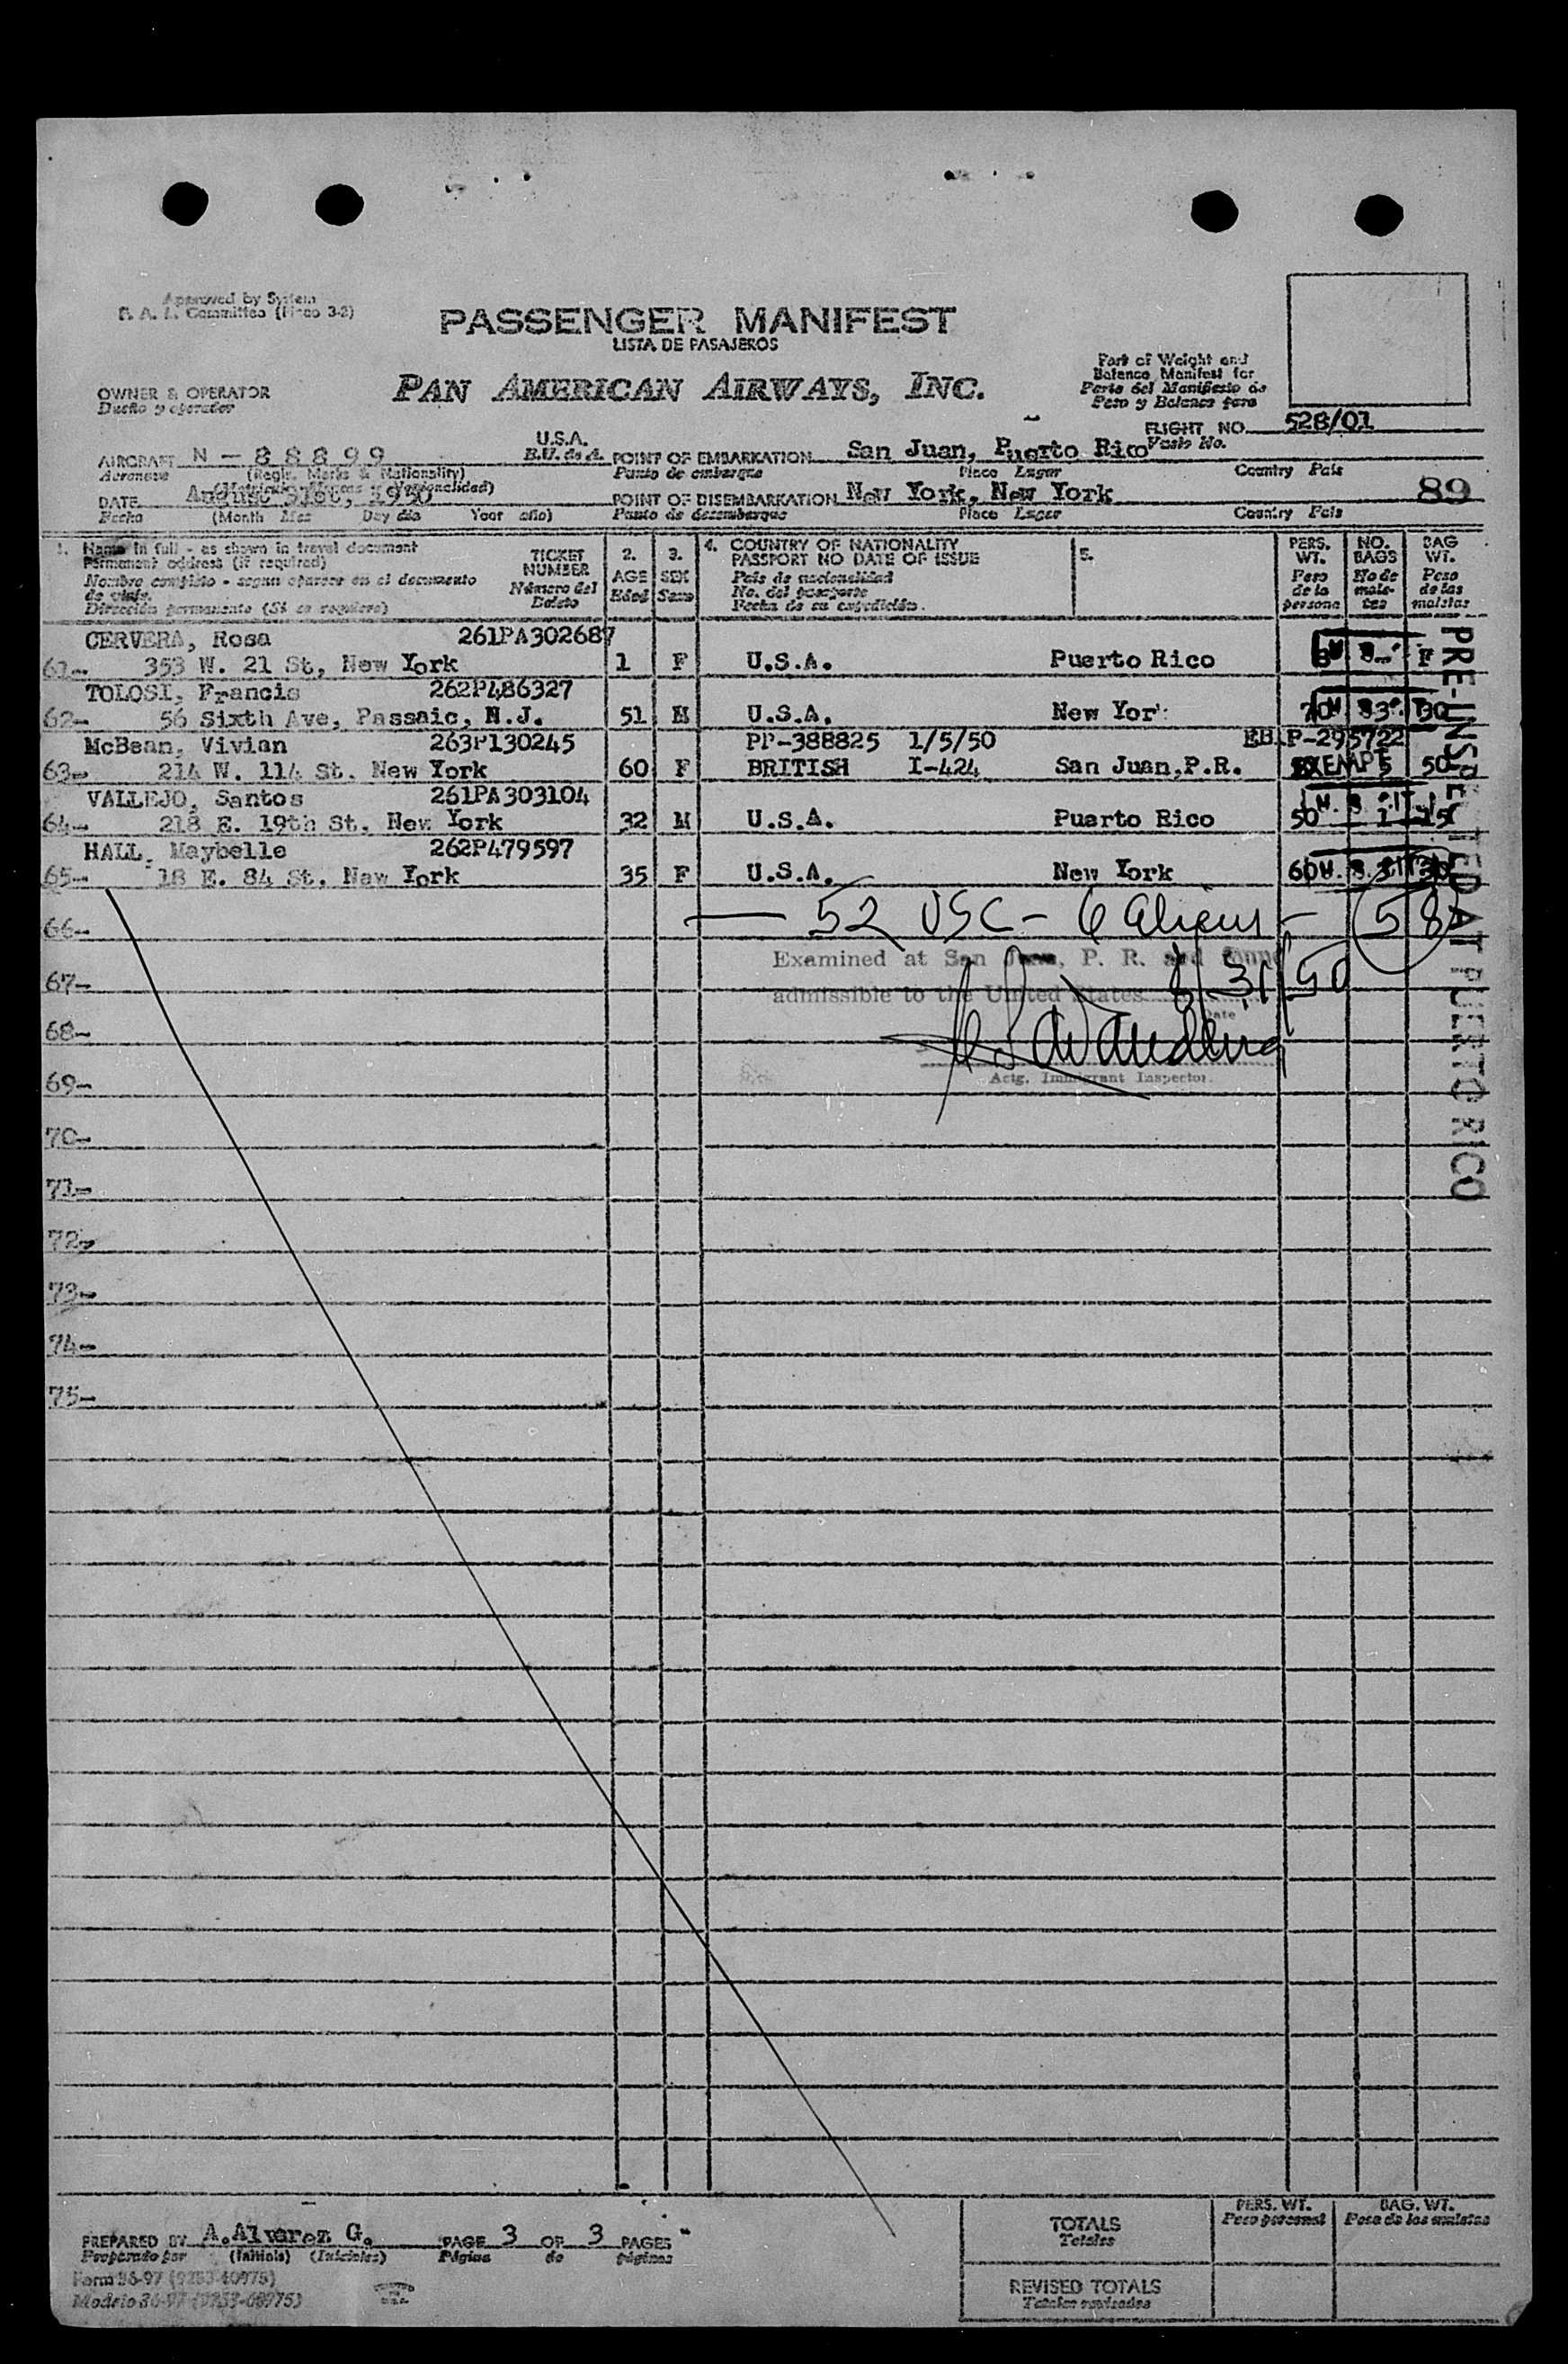 Approved by System
PASSENGER MANIFEST
LISTA DE PASAJEROS
PAN AMERICAN AIRWAYS, INC.
Part of Weight and
Balance Manifest for
Parte del Manifiesto de
Peso y Balance para
OWNER & OPERATOR
Dueño y operador
FLIGHT NO. 528/01
Vuelo No.
AIRCRAFT N - 88899 U.S.A.
Aeronave (Regis. Marks & Nationality) E.U. de A.
POINT OF EMBARKATION San Juan, Puerto Rico
Punto de embarque Place Lugar Country Pais
DATE August 31st, 1950
Fecha (Month Mes Day dia Year año)
POINT OF DISEMBARKATION New York, New York
Punto de desembarque Place Lugar Country Pais
89
1. Name in full - as shown in travel document
Permanent address (if required)
Nombre completo - segun aparece en el documento
de viaje.
Dirección permanente (Si se requiere)
TICKET
NUMBER
Número del
Boleto
2.
AGE
Edad
3.
SEX
Sexo
4. COUNTRY OF NATIONALITY
PASSPORT NO DATE OF ISSUE
Pais de nacionalidad
No. del pasaporte
Fecha de su expedición.
5.
PERS.
WT.
Peso
de la
persona
NO.
BAGS
No de
male-
tas
BAG
WT.
Peso
de las
maletas
CERVERA, Rosa 261PA302687
61- 353 W. 21 St, New York 1 F U.S.A. Puerto Rico
TOLOSI, Francis 262P486327
62- 56 Sixth Ave, Passaic, N.J. 51 M U.S.A. New Yor 70 3 30
McBean, Vivian 263P130245 PP-388825 1/5/50 P-295722
63- 214 W. 114 St. New York 60 F BRITISH I-424 San Juan, P.R. EXEMPT 5 50
VALLEJO, Santos 261PA303104
64- 218 E. 19th St, New York 32 M U.S.A. Puerto Rico 50 1 15
HALL, Maybelle 262P479597
65- 18 E. 84 St, New York 35 F U.S.A. New York 60 3 30
PRE-INSPECTED AT PUERTO RICO
66- — 52 USC - 6 Aliens - 58
Examined at San Juan, P. R. and found
67- admissible to the United States 8/31/50
Date
68-
Actg. Immigrant Inspector.
69-
70-
71-
72-
73-
74-
75-
PREPARED BY A. Alvarez G. PAGE 3 OF 3 PAGES
Preparado por (Initials) (Iniciales) Página de páginas
Form 36-97
Modelo 36-97
PERS. WT.
Peso personal
BAG. WT.
Peso de las maletas
TOTALS
Totales
REVISED TOTALS
Totales revisados